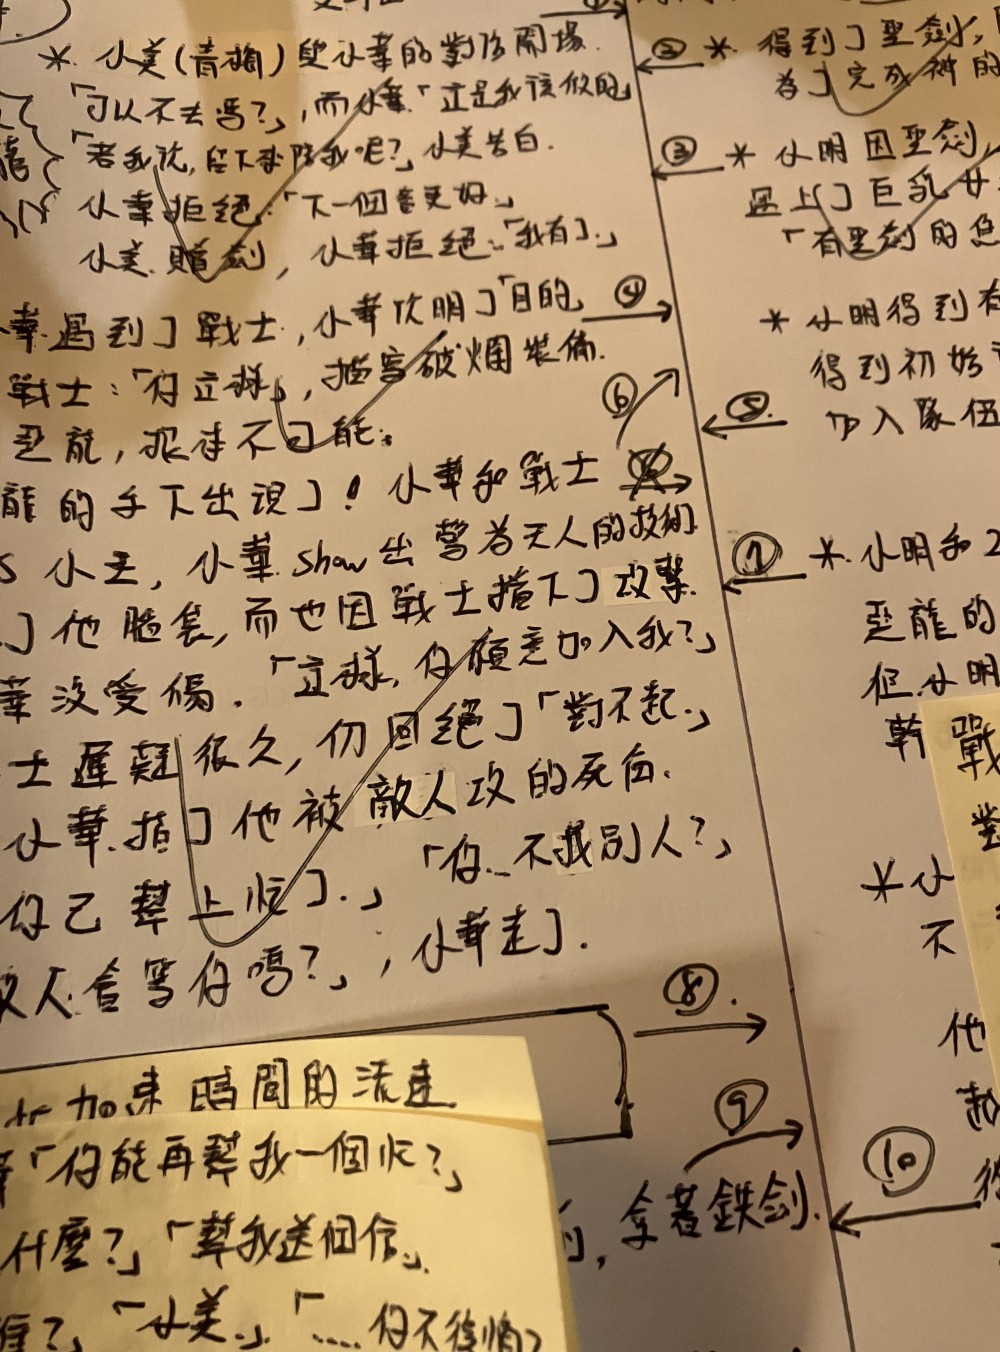 * 小美(青梅)與小華的對話開場.
「可以不去嗎?」,而小華.「這是我該做的」
「若我說,留下來陪我呢?」小美告白.
小華拒絕.「下一個會更好.」
小美.贈劍,小華拒絕.「我有了.」
華.遇到了戰士,小華說明了「目的」
戰士:「你這樣」,描寫破爛裝備.
惡龍,根本不可能.
龍的手下出現了!小華和戰士
S 小王,小華.show出驚為天人的技術.
了他腦袋,而也因戰士擋下了攻擊.
華沒受傷.「這樣,你願意加入我?」
士遲疑很久,仍回絕了「對不起.」
小華.指了他被敵人攻的死角.
你已幫上忙了.」「你...不找別人?」
人.會等你嗎?」,小華走了.
④
⑥
⑧.
⑨
,拿著鉄劍.
加速時間的流速
「你能再幫我一個忙?」
什麼?」「幫我送個信.」
誰?」「小美.」「....你不後悔?
② * 得到了聖劍,
為了完成神的
③ * 小明因聖劍,
遇上了巨乳女
「有聖劍的
* 小明得到有
得到初始
加入隊伍
⑤.
⑦ *.小明和
惡龍的
但.小明
幹
戰
對
* 小
不
他
起
⑩